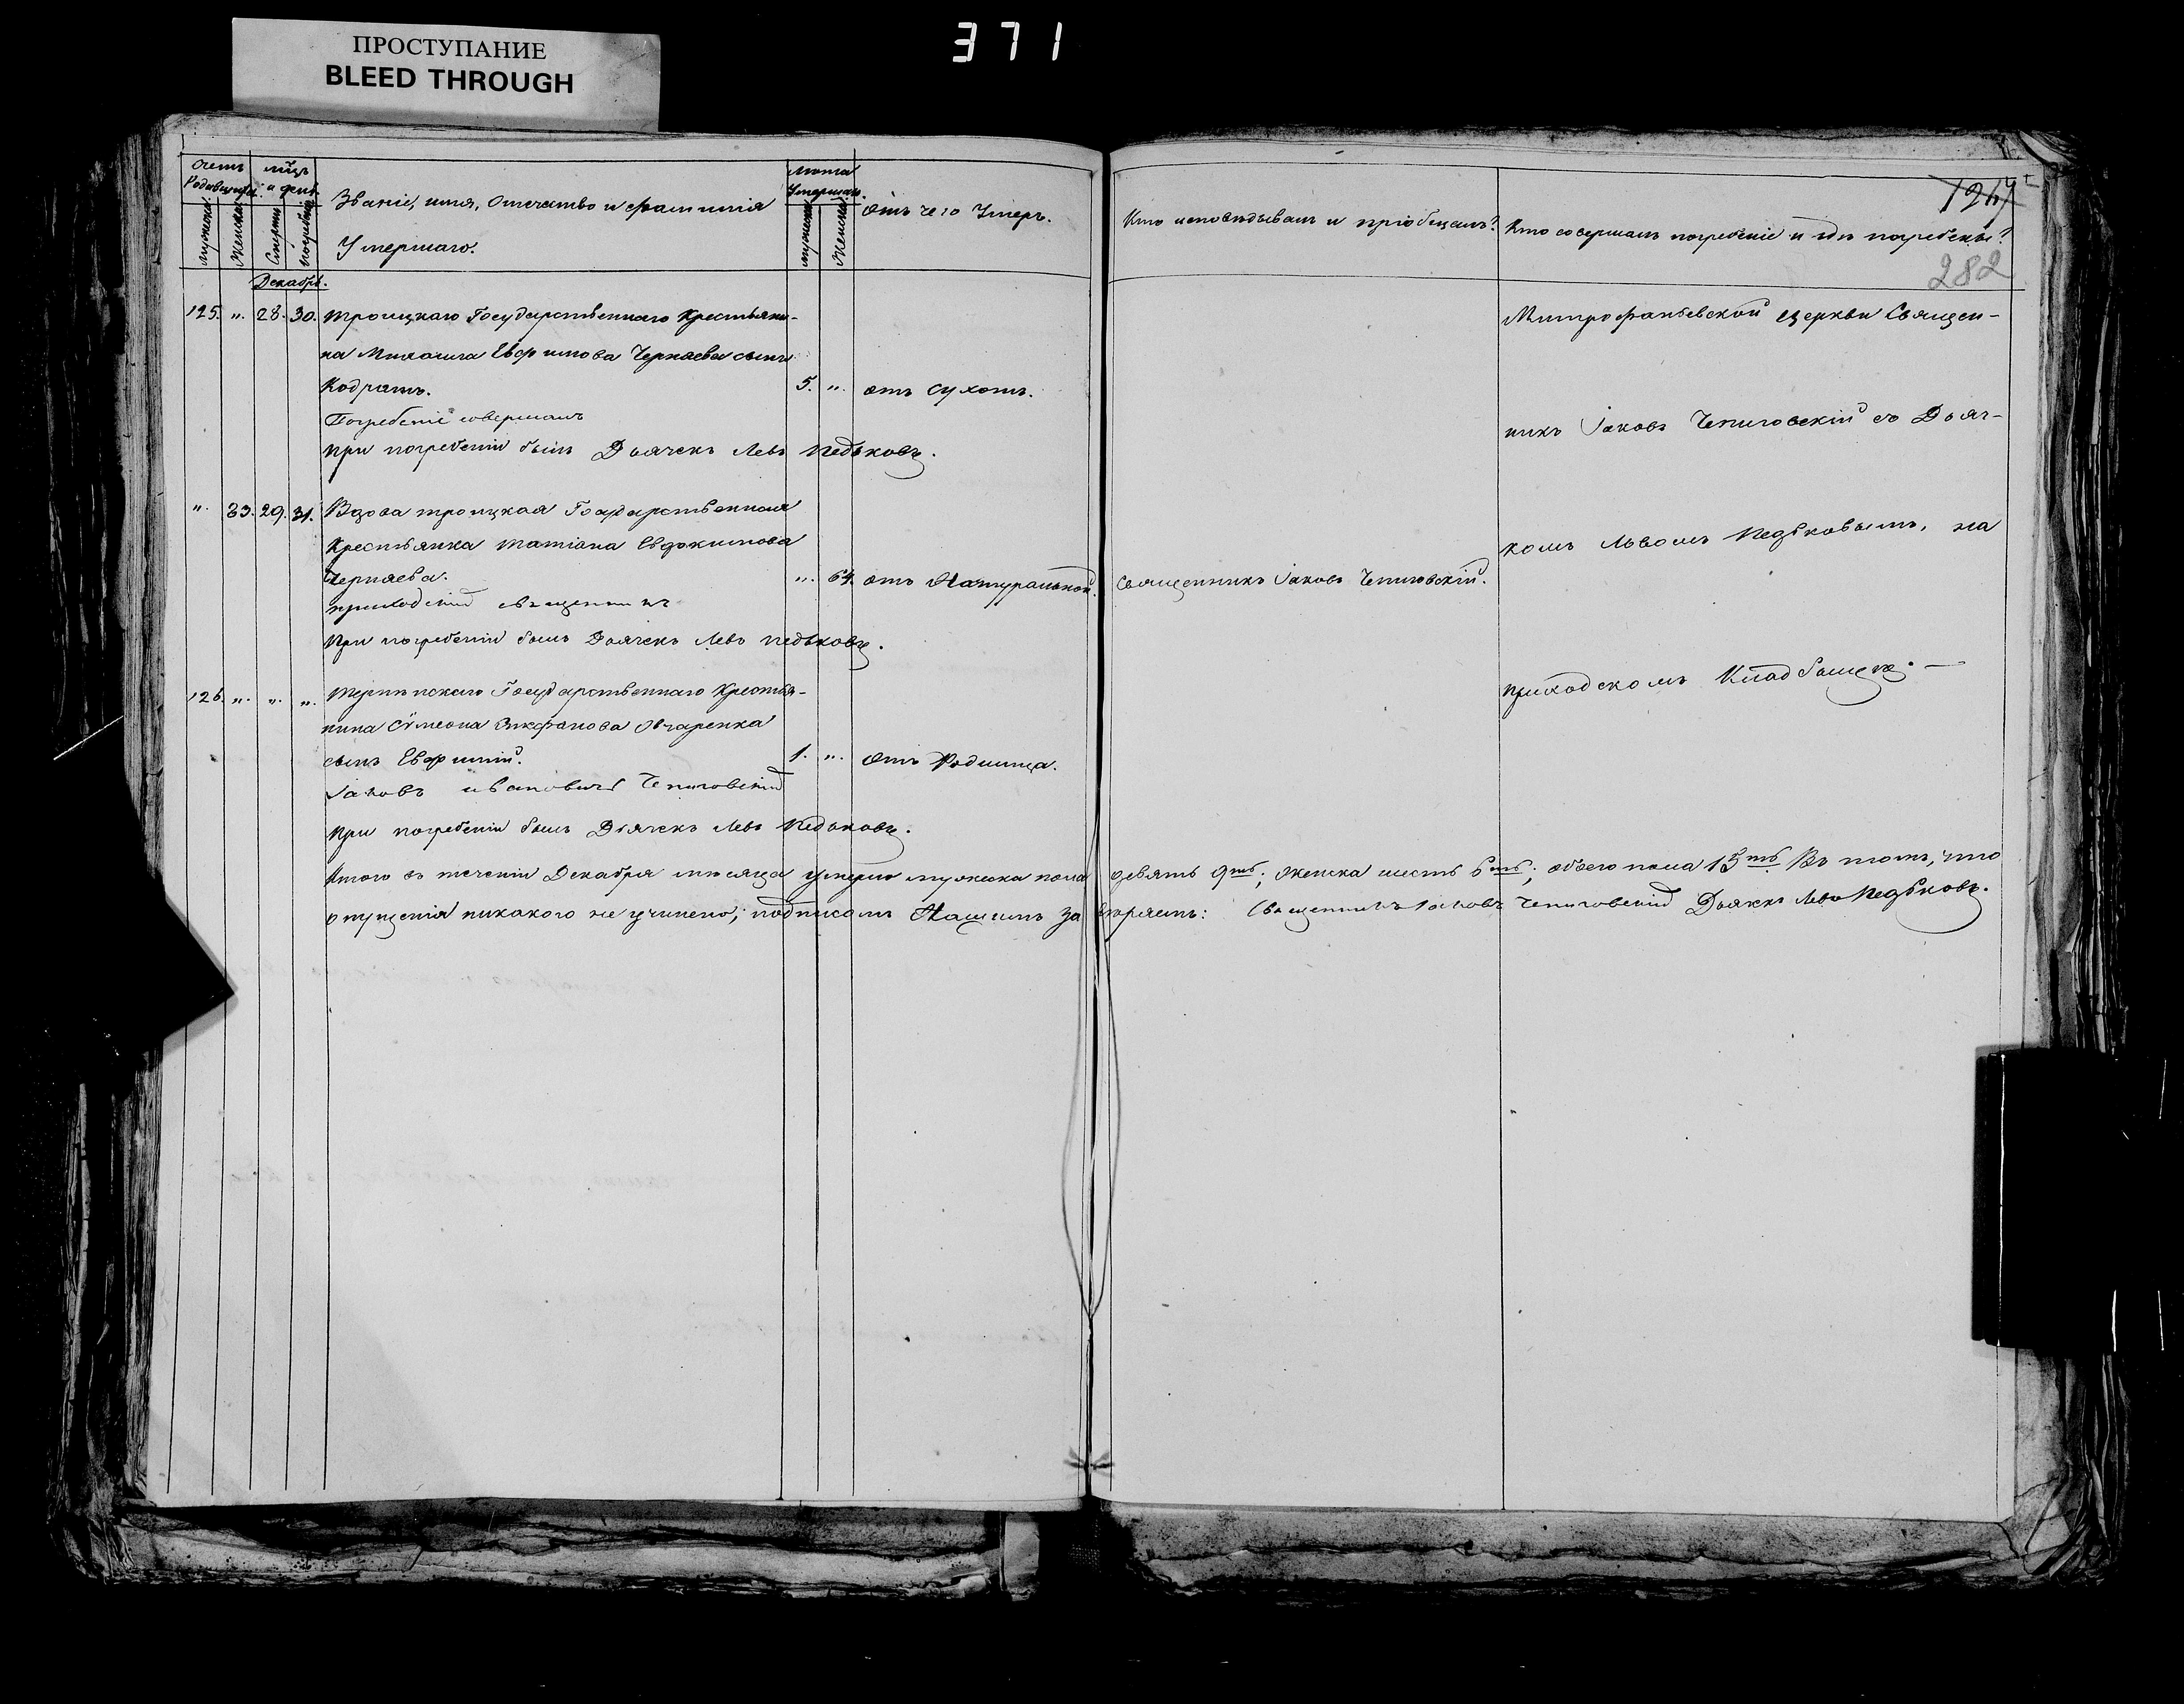 ПРОСТУПАНИЕ
BLEED THROUGH
371
Счетъ Родившихся.
мужска
Женска
мѣсяцъ и день
Смерти
погребенія
Званіе, имя, Отечество и фамилія
Умершаго.
лѣта Умершаго.
мужска
Женска
отъ чего Умеръ.
Кто исповѣдывалъ и пріобщалъ?
Кто совершалъ погребеніе и гдѣ погребены?
282
Декабрь.
125. „. 28. 30. Троицкаго Государственнаго Крестьяни-
на Евфимова Черняева сынъ
Кодратъ. 5. „. отъ Сухотъ.
Погребеніе совершалъ
При погребеніи былъ Дьячекъ Левъ Педьковъ.
„. 83. 29. 31. Вдова троицкая Государственная
Крестьянка Татіана Евдокимова
Черняева. „. 64. отъ Натуральной. Священникъ Іаковъ Чепиговскій.
приходскій священникъ
При погребеніи былъ Дьячекъ Левъ Педьковъ.
126. „. „. „. Государственнаго Крестья-
нина Сѵмеона Овчаренка
сынъ Евфимій. 1. „. отъ Родимца.
Іаковъ Ивановичъ Чепиговскій
При погребеніи былъ Дьячекъ Левъ Педьковъ.
Митрофаньевской Церкви Священ-
никъ Іаковъ Чепиговскій съ Дьяч-
комъ Львомъ Педьковымъ, на
приходскомъ Кладбищѣ. —
Итого въ теченіи Декабря мѣсяца умерло мужеска пола девять 9ть; Женска шесть 6ть; обоего пола 15ть Въ томъ, что
опущенія никакого не учинено, подписомъ Нашимъ завѣряемъ: Священникъ Іаковъ Чепиговскій Дьячекъ Левъ Педьковъ.